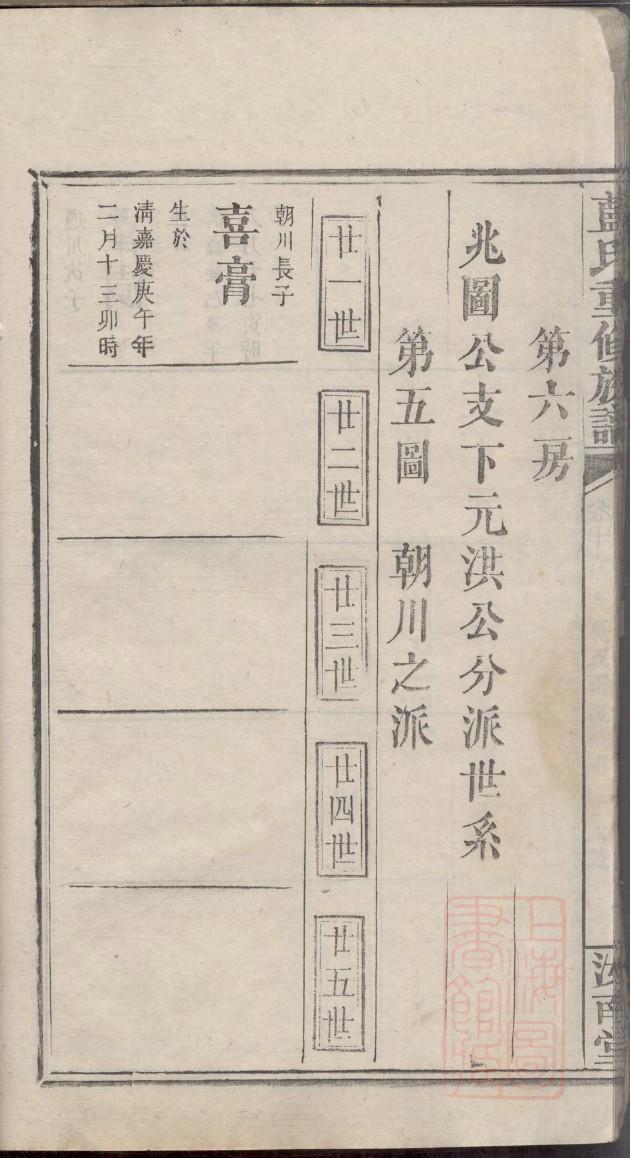 藍氏重修族譜
汝南堂
第六房
兆圖公支下元洪公分派世系
第五圖 朝川之派
廿一世
廿二世
廿三世
廿四世
廿五世
朝川長子
喜膏
生於
清嘉慶庚午年
二月十三卯時
上海圖書館藏